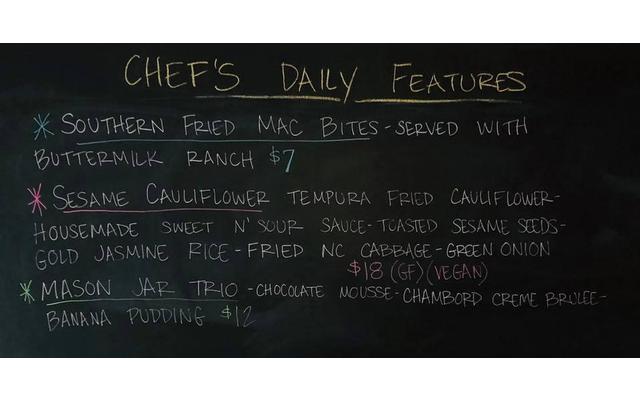 CHEF'S DAILY FEATURES
* SOUTHERN FRIED MAC BITES - SERVED WITH
BUTTERMILK RANCH $7
* SESAME CAULIFLOWER TEMPURA FRIED CAULIFLOWER-
HOUSEMADE SWEET N' SOUR SAUCE - TOASTED SESAME SEEDS-
GOLD JASMINE RICE - FRIED NC CABBAGE - GREEN ONION
$18 (GF) (VEGAN)
* MASON JAR TRIO - CHOCOLATE MOUSSE - CHAMBORD CREME BRULEE-
BANANA PUDDING $12